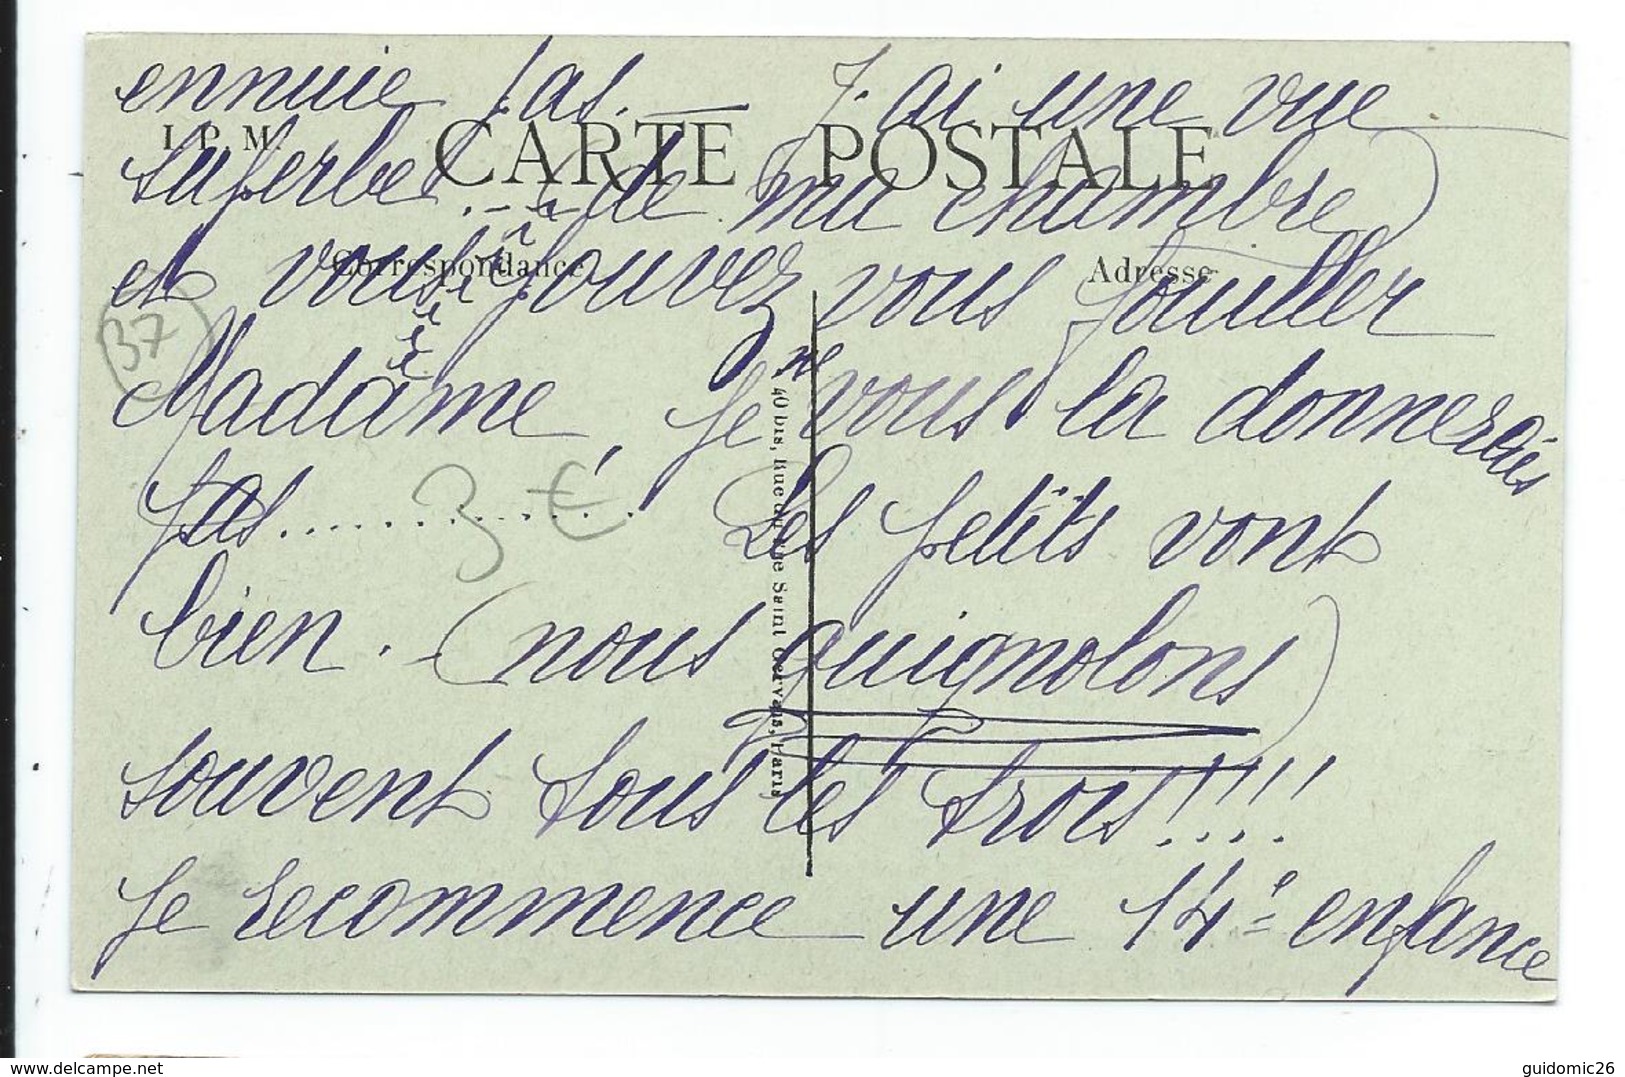 ennuie pas. — J. ai une vue
I. P. M. CARTE POSTALE
superbe . - - de ma chambre
Correspondance Adresse
et vous pouvez vous fouiller
37
Madame, je ne vous la donnerais
pas............! Les petits vont
3 €
bien. - (nous guignolons)
souvent tous les trois!!!!
Je recommence une 14e enfance
40 bis, Rue du Rue Saint Gervais, Paris
delcampe.net
guidomic26